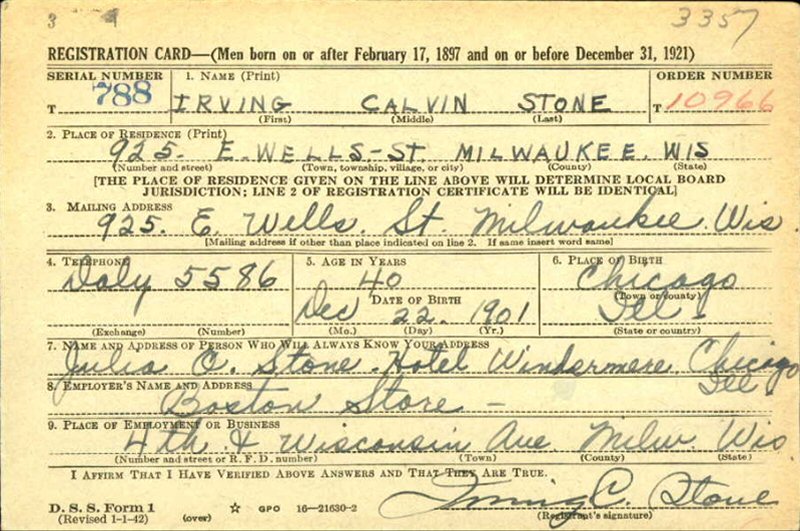 3 3357
REGISTRATION CARD—(Men born on or after February 17, 1897 and on or before December 31, 1921)
SERIAL NUMBER 1. NAME (Print) ORDER NUMBER
T 788 IRVING CALVIN STONE T 10966
(First) (Middle) (Last)
2. PLACE OF RESIDENCE (Print)
925. E. WELLS-ST. MILWAUKEE. WIS
(Number and street) (Town, township, village, or city) (County) (State)
[THE PLACE OF RESIDENCE GIVEN ON THE LINE ABOVE WILL DETERMINE LOCAL BOARD
JURISDICTION; LINE 2 OF REGISTRATION CERTIFICATE WILL BE IDENTICAL]
3. MAILING ADDRESS
925. E. Wells. St. Milwaukee. Wis.
[Mailing address if other than place indicated on line 2. If same insert word same]
4. TELEPHONE 5. AGE IN YEARS 6. PLACE OF BIRTH
Daly 5586 40 Chicago
DATE OF BIRTH (Town or county)
Dec 22 1901 Ill.
(Exchange) (Number) (Mo.) (Day) (Yr.) (State or country)
7. NAME AND ADDRESS OF PERSON WHO WILL ALWAYS KNOW YOUR ADDRESS
Julia O. Stone. Hotel Windermere. Chicago
Ill.
8. EMPLOYER'S NAME AND ADDRESS
Boston Store —
9. PLACE OF EMPLOYMENT OR BUSINESS
4th & Wisconsin Ave. Milw. Wis.
(Number and street or R. F. D. number) (Town) (County) (State)
I AFFIRM THAT I HAVE VERIFIED ABOVE ANSWERS AND THAT THEY ARE TRUE.
D. S. S. Form 1 Irving C. Stone
(Revised 1-1-42) (over) ☆ GPO 16—21630-2 (Registrant's signature)